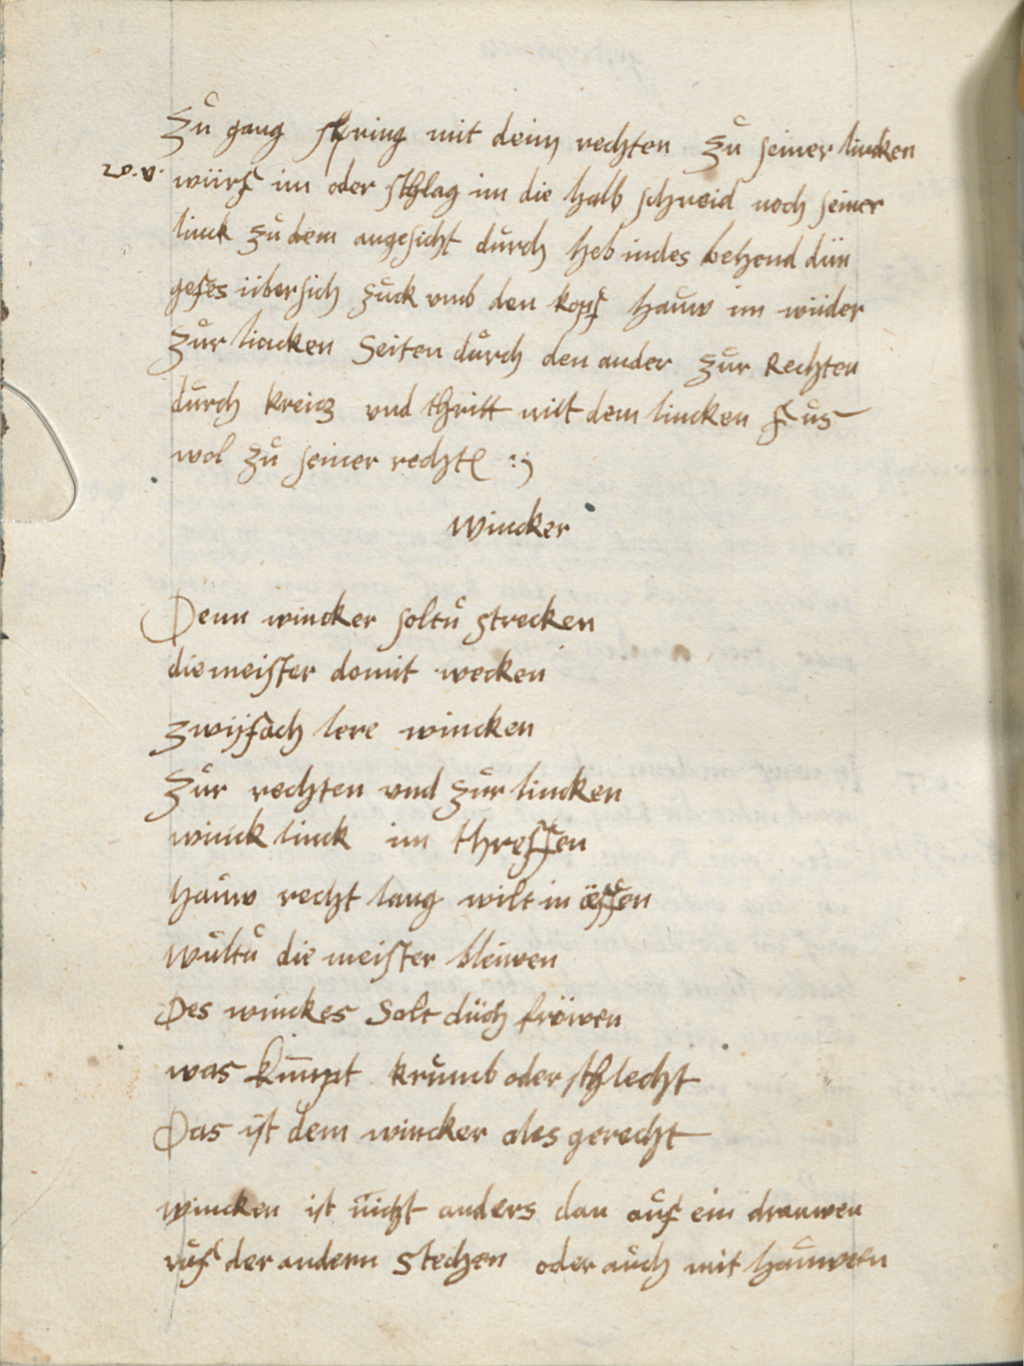 zů gang spring mit deim rechten zů seiner lincken
20. v. würf im oder schlag im die halb schneid noch seiner
linck zů dem angesicht důrch heb indes behend dün
gefes übersich zůck vmb den kopf hauw im wüder
zůr lincken Seiten důrch den ander zůr Rechten
důrch kreicz vnd thritt mit dem lincken fůs
wol zů seiner recht :
Wincker
Denn wincker soltů strecken
die meister domit wecken
zwifach lere wincken
zůr rechten vnd zůr lincken
winck linck im threffen
hauw recht lang wilt in äffen
wůltů die meister bleiwen
Des winckes Solt düch fröwen
was kumpt krůmb oder schlecht
Das ist dem wincker ales gerecht
wincken ist nicht anders dan aůf ein drauwen
vůf der andern Stechen oder aůch mit hauwen